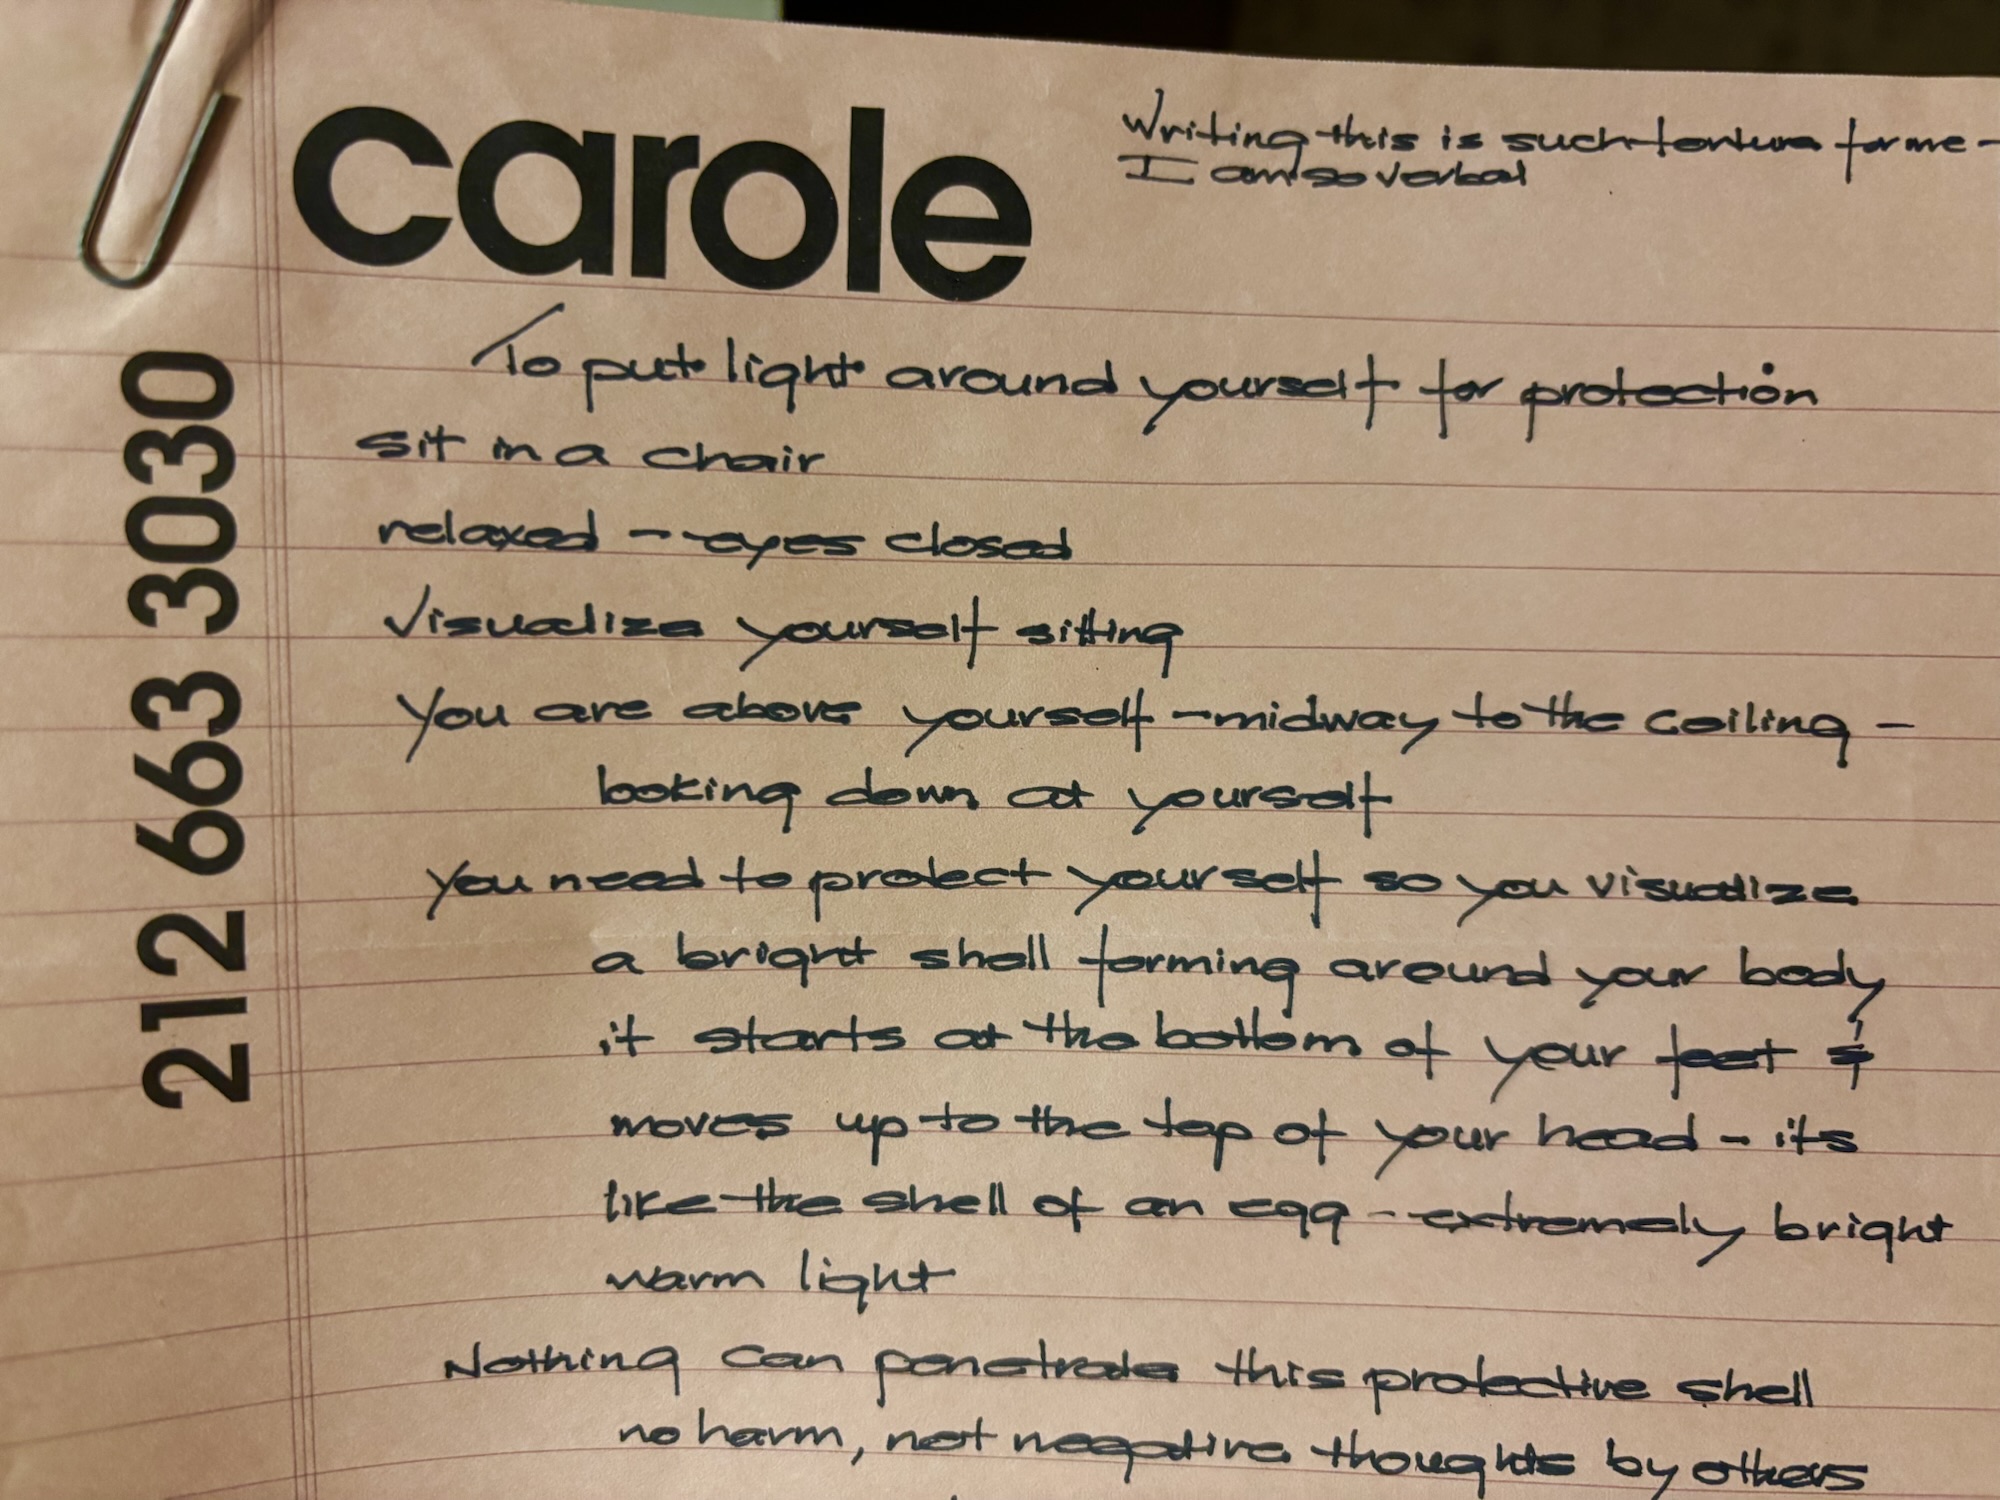 carole
Writing this is such torture for me -
I am so verbal
212 663 3030
To put light around yourself for protection
sit in a chair
relaxed -- eyes closed
Visualize yourself sitting
You are above yourself - midway to the ceiling -
looking down at yourself
You need to protect yourself so you visualize
a bright shell forming around your body
it starts at the bottom of your feet &
moves up to the top of your head - its
like the shell of an egg -- extremely bright
warm light
Nothing can penetrate this protective shell
no harm, not negative thoughts by others